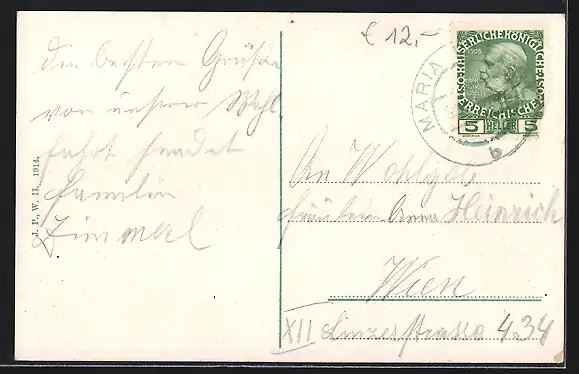 Die besten Grüße
von unserer Wall
fahrt sendet
Familie
Zimmerl
J. P., W. II. 1914.
€ 12,-
KAISERLICHE KÖNIGLICHE
ÖSTERREICHISCHE
1908
5 HELLER 5
MARIA
b
An Wohlgeb
Fräulein Anna Heinrich
Wien
XII Linzerstrasse 434